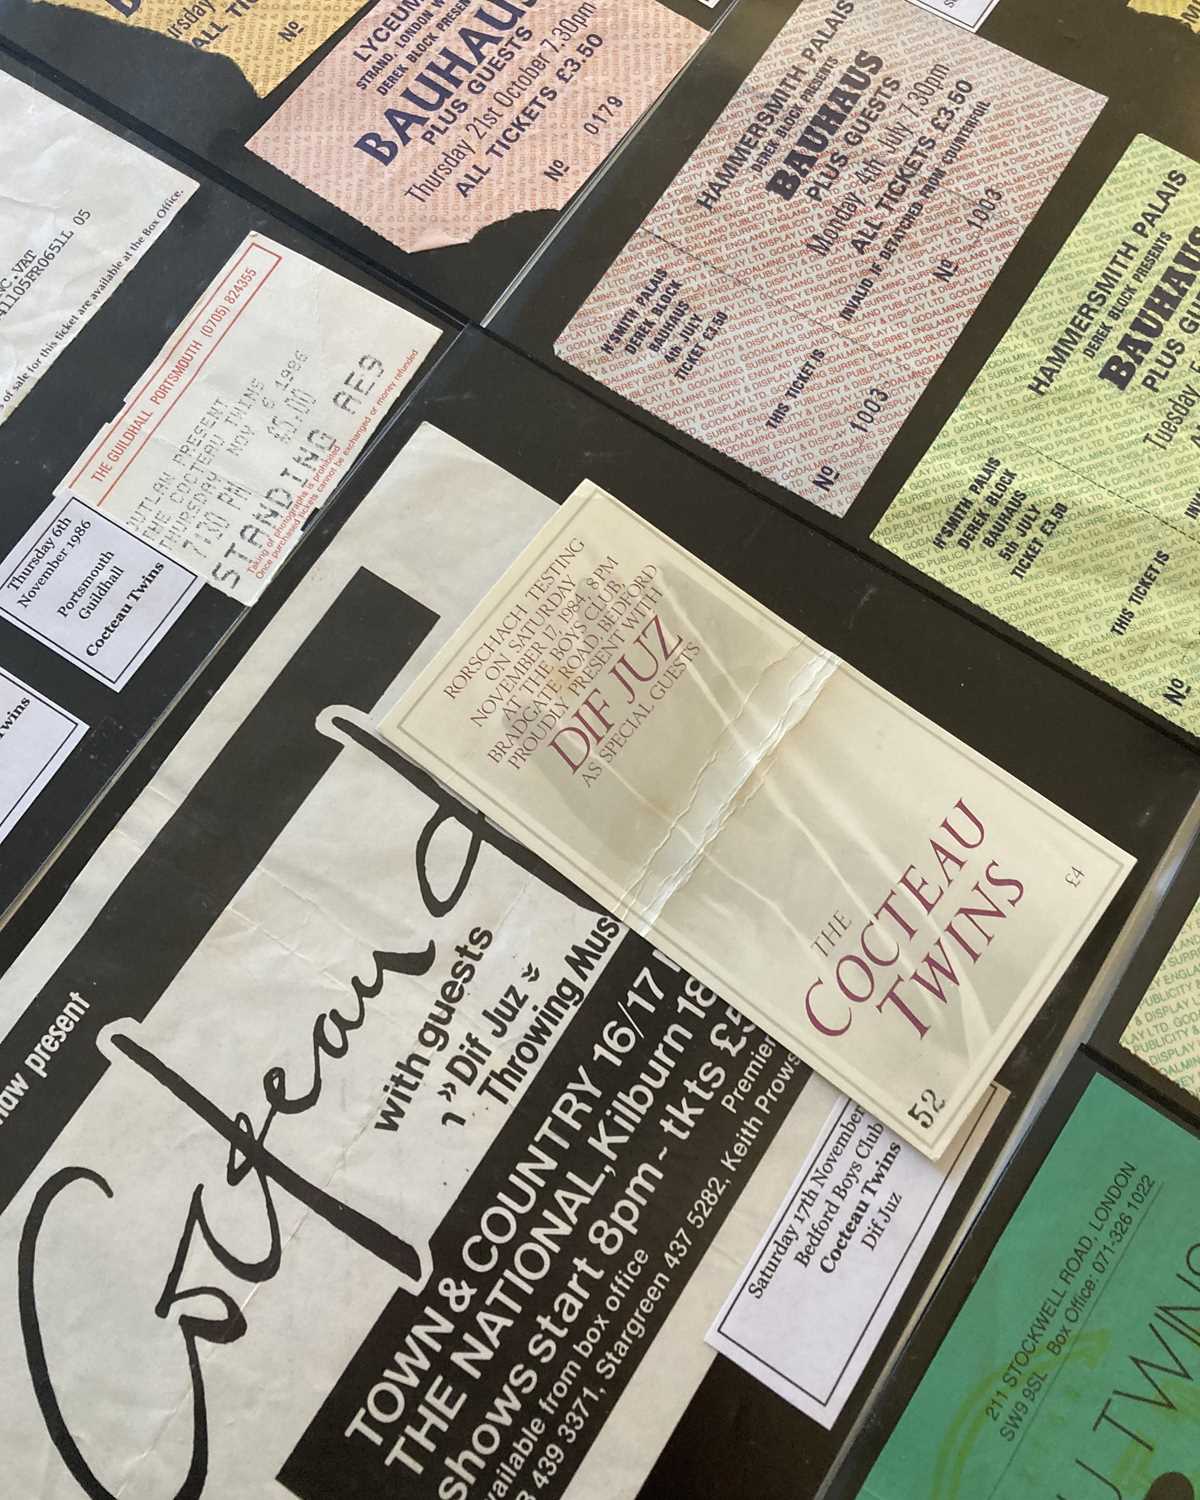 ALL TI
Nº
LYCEUM
STRAND, LONDON W
DEREK BLOCK PRESEN
BAUHAUS
PLUS GUESTS
Thursday 21st October 7.30pm
ALL TICKETS £3.50
Nº 0179
HAMMERSMITH PALAIS
DEREK BLOCK PRESENTS
BAUHAUS
PLUS GUESTS
Monday 4th July 7.30pm
ALL TICKETS £3.50
INVALID IF DETATCHED FROM COUNTERFOIL
Nº 1003
H'SMITH PALAIS
DEREK BLOCK
BAUHAUS
4th JULY
TICKET £3.50
THIS TICKET IS
Nº 1003
HAMMERSMITH PALAIS
DEREK BLOCK PRESENTS
BAUHAUS
PLUS GU
Tuesday 5
H'SMITH PALAIS
DEREK BLOCK
BAUHAUS
5th JULY
TICKET £3.50
THIS TICKET IS
INV
Nº
NC.VAT
41105FR0651L 05
s of sale for this ticket are available at the Box Office.
THE GUILDHALL PORTSMOUTH (0705) 824355
OUTLAW PRESENT
THE COCTEAU TWINS
THURSDAY NOV 6 1986
7:30 PM £5.00
STANDING AE9
Taking of photographs is prohibited
Once purchased tickets cannot be exchanged or money refunded
Thursday 6th
November 1986
Portsmouth
Guildhall
Cocteau Twins
wins
RORSCHACH TESTING
ON SATURDAY
NOVEMBER 17, 1984, 8 PM
AT THE BOYS CLUB,
BRADGATE ROAD, BEDFORD
PROUDLY PRESENT WITH
DIF JUZ
AS SPECIAL GUESTS
THE
COCTEAU
TWINS
£4
52
law present
Cocteau
with guests
Dif Juz
Throwing Mus
TOWN & COUNTRY 16/17
THE NATIONAL, Kilburn 18
shows start 8pm ~ tkts £5
available from box office Premier
3 439 3371, Stargreen 437 5282, Keith Prows
Saturday 17th November
Bedford Boys Club
Cocteau Twins
Dif Juz
211 STOCKWELL ROAD, LONDON
SW9 9SL Box Office: 071-326 1022
U TWINS